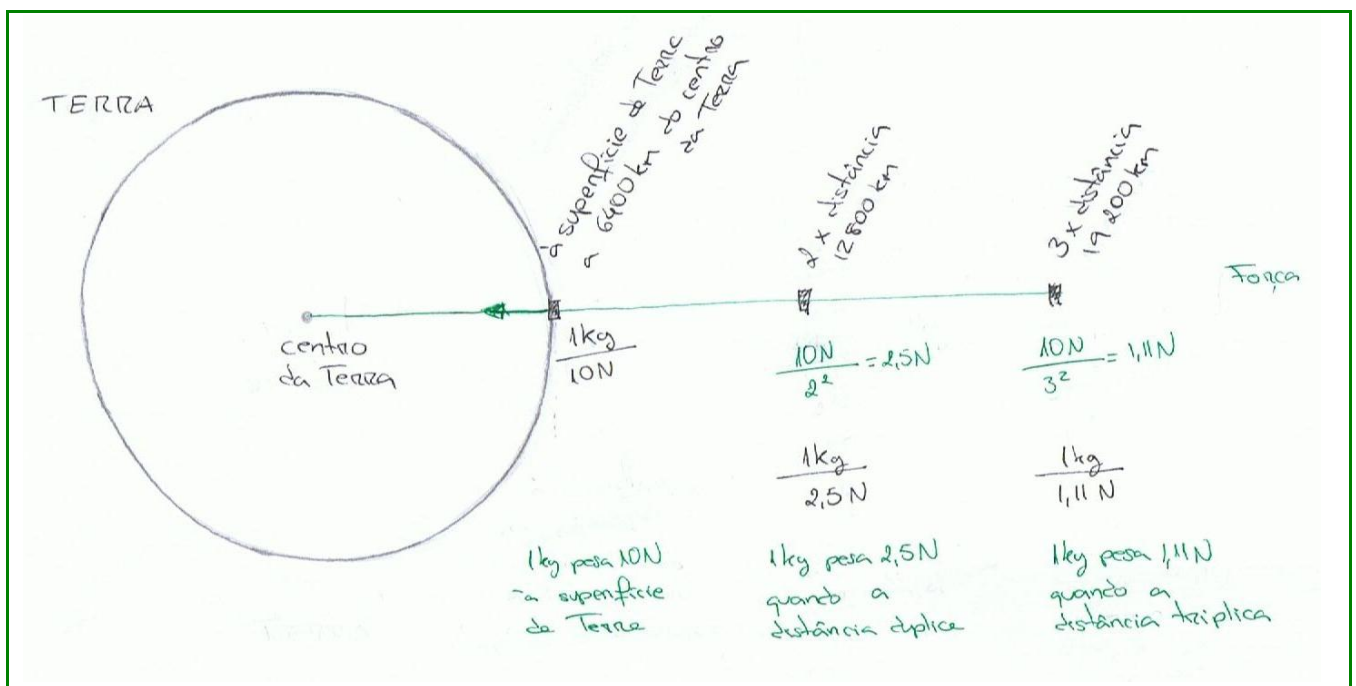 TERRA
à superfície da Terra
a 6400km do centro
da Terra
2 x distância
12800km
3 x distância
19 200km
Força
centro
da Terra
1kg
10N
10N
2²
= 2,5N
10N
3²
= 1,11N
1kg
2,5N
1kg
1,11 N
1kg pesa 10N
à superfície
da Terra
1kg pesa 2,5N
quando a
distância duplica
1kg pesa 1,11N
quando a
distância triplica